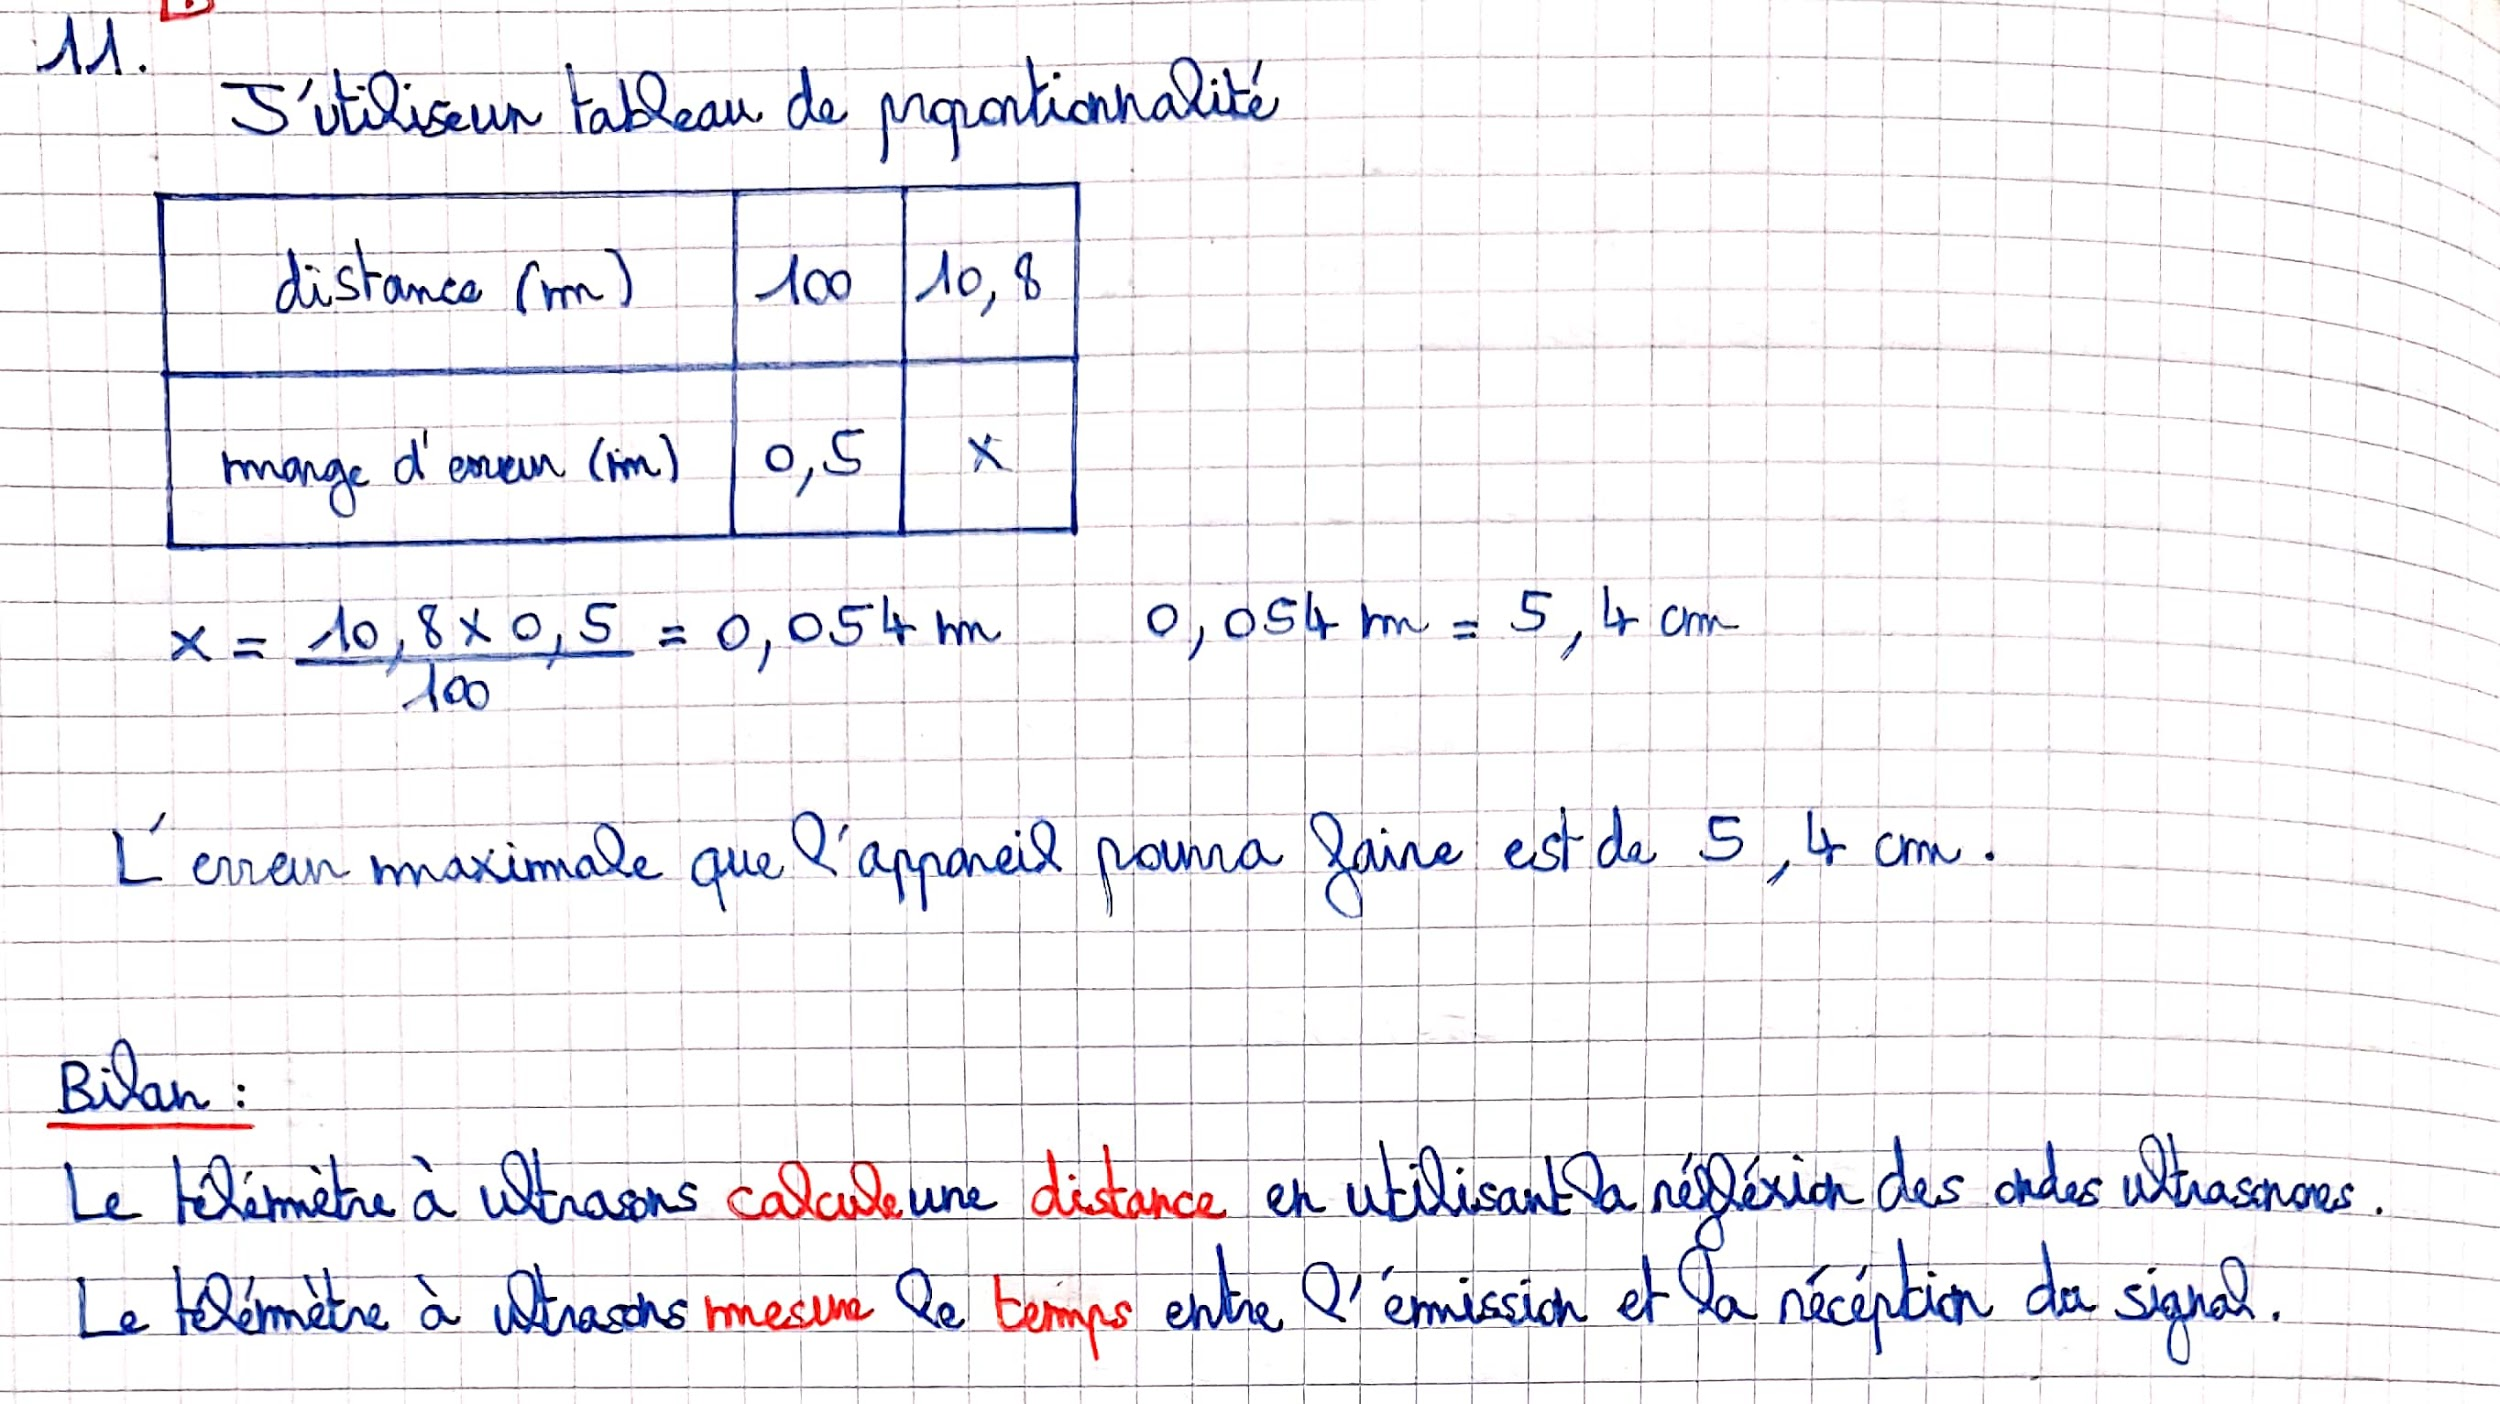 11.
J'utilise un tableau de proportionnalité
distance (m) 100 10,8
marge d'erreur (m) 0,5 x
x = 10,8 x 0,5 / 100 = 0,054 m 0,054 m = 5,4 cm
L'erreur maximale que l'appareil pourra faire est de 5,4 cm.
Bilan :
Le télémètre à ultrasons calcule une distance en utilisant la réfléxion des ondes ultrasonores.
Le télémètre à ultrasons mesure le temps entre l'émission et la récéption du signal.